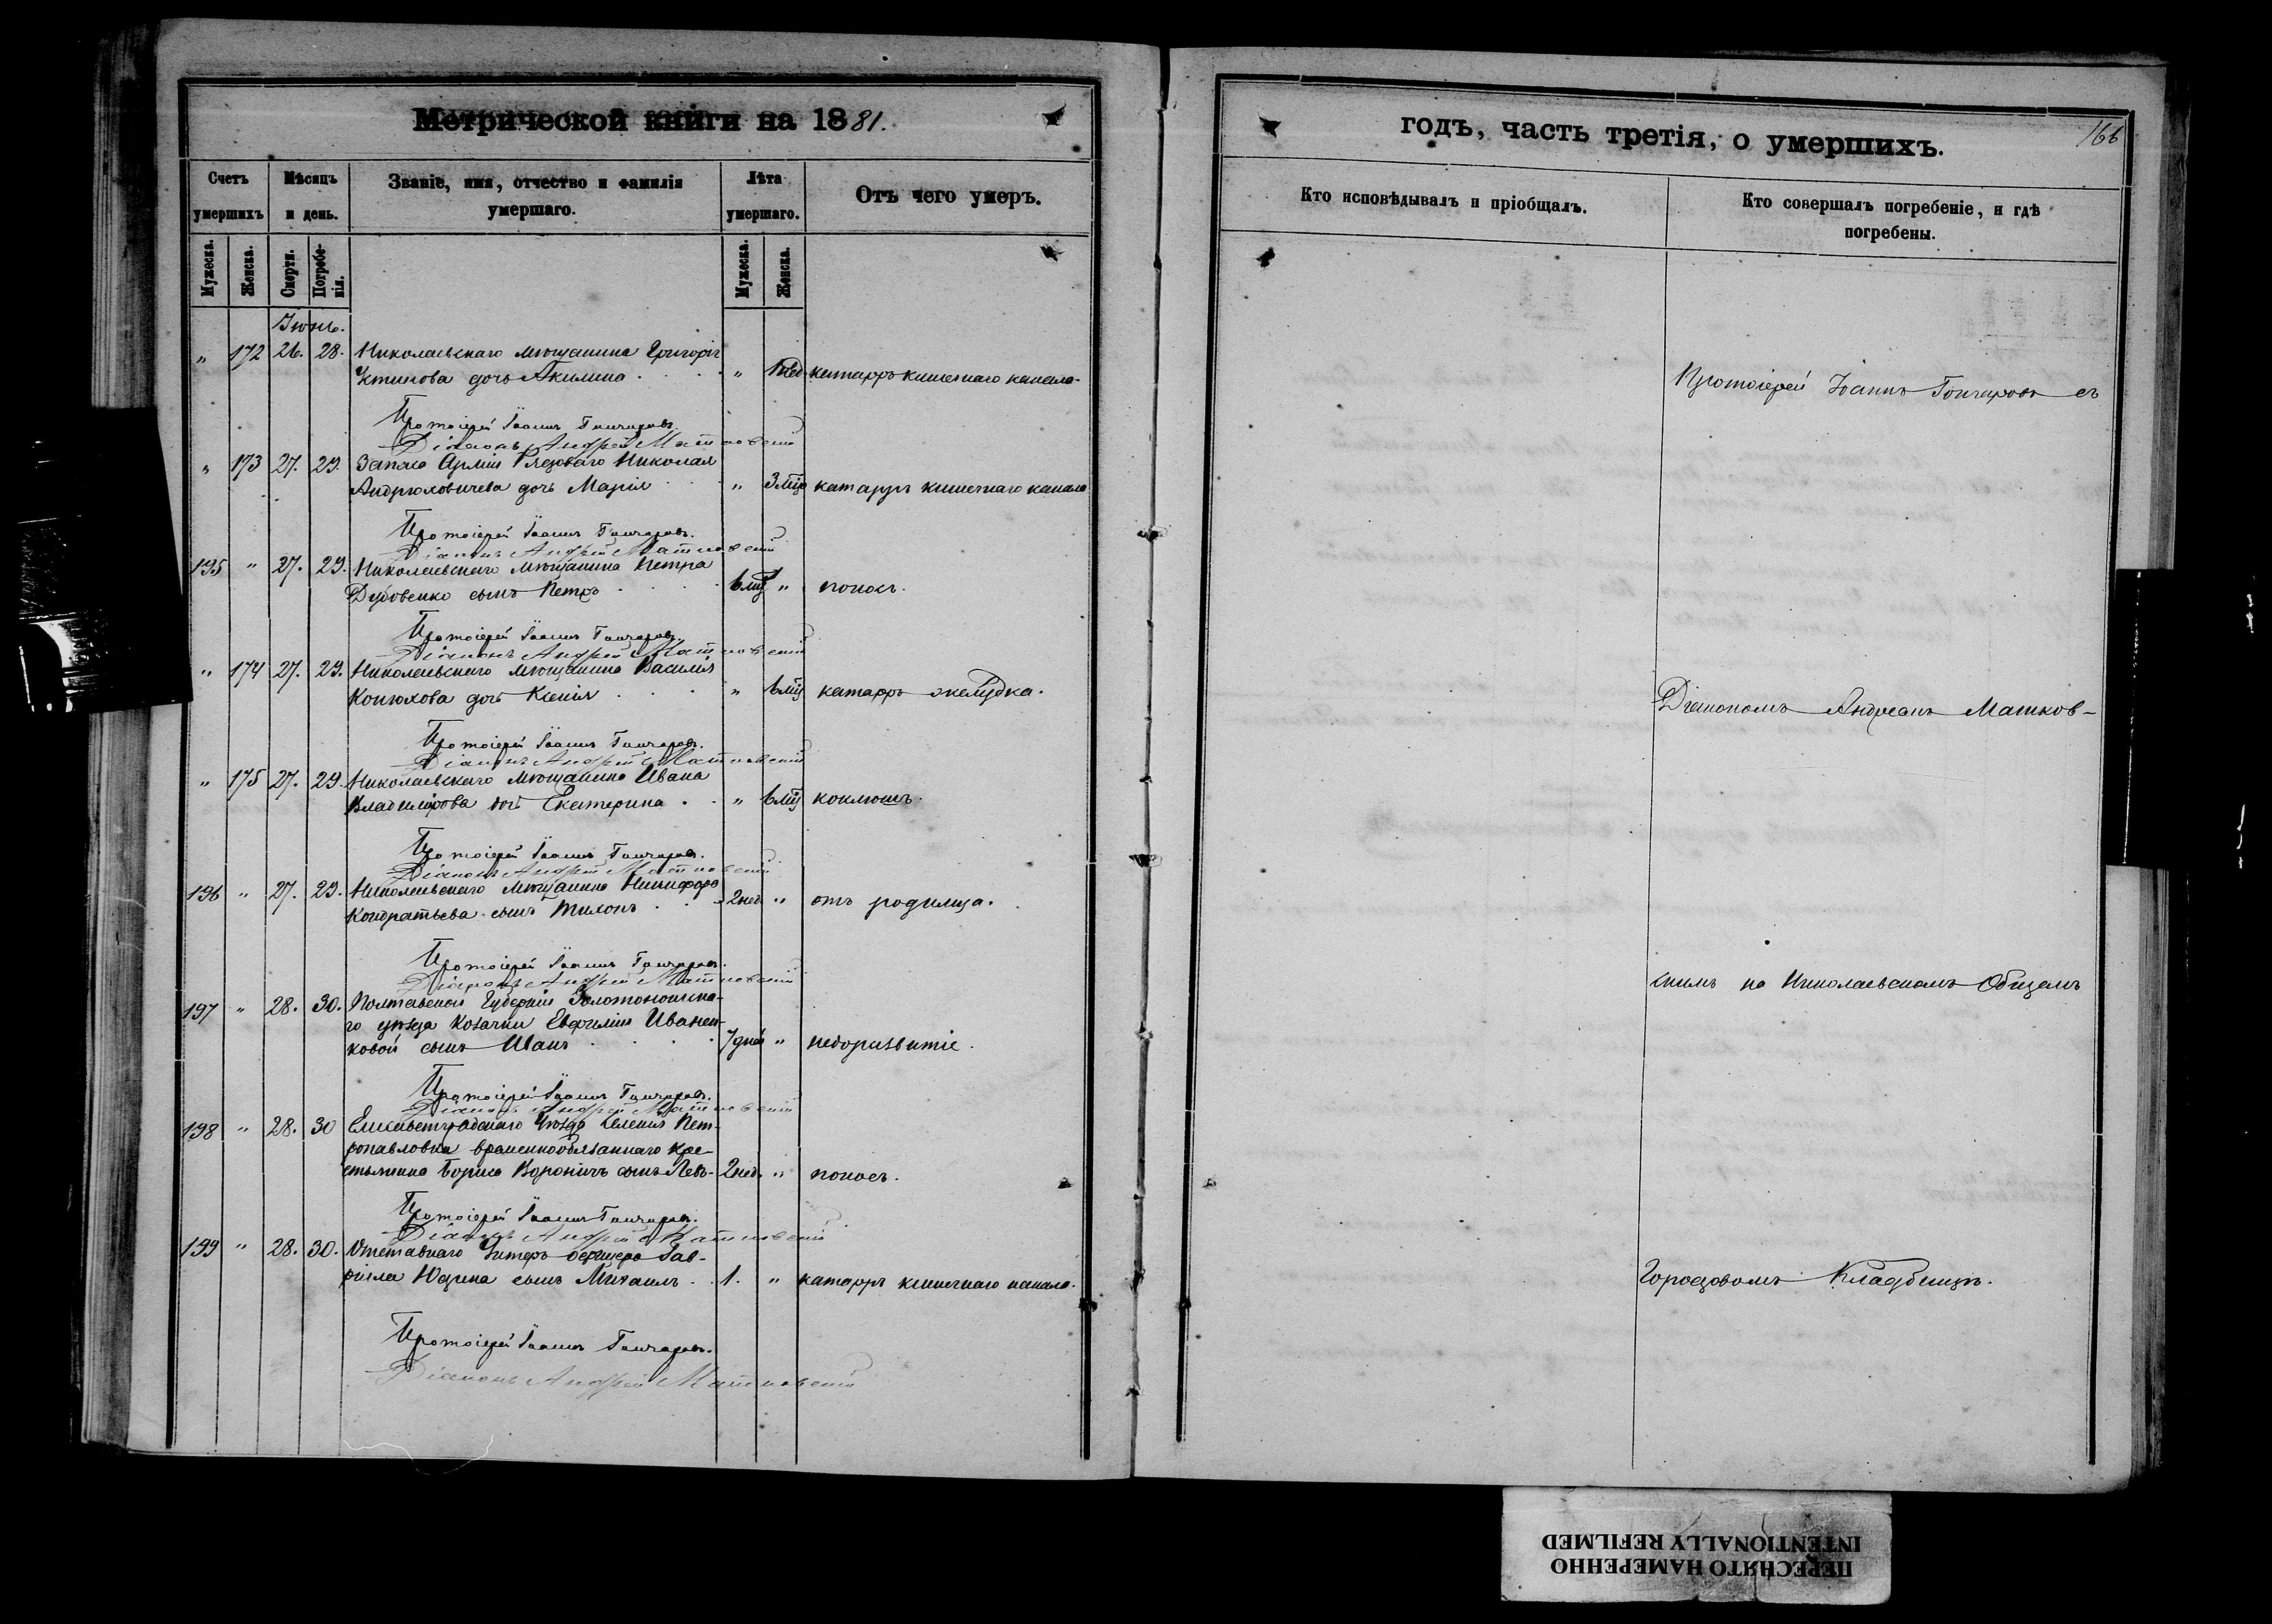 Метрической книги на 1881.
Счетъ умершихъ
Мѣсяцъ и день.
Званіе, имя, отчество и фамилія умершаго.
Лѣта умершаго.
Отъ чего умеръ.
Мужеска.
Женска.
Смерти.
Погребенія.
Мужеска.
Женска.
Іюнь.
" 172 26. 28. Николаевскаго мѣщанина Григорія
Устинова дочь Акилина " катарръ кишечнаго канала.
Протоіерей Іоаннъ Гончаровъ.
Діаконъ Андрей Матковскій
" 173 27. 29. Запаса Арміи Рядоваго Николая
Андрюловичева дочь Марія " 3 мѣс катарръ кишечнаго канала
Протоіерей Іоаннъ Гончаровъ.
Діаконъ Андрей Матковскій
195 " 27. 29. Николаевскаго мѣщанина Петра
Дудовенко сынъ Петръ 6 мѣс " поносъ.
Протоіерей Іоаннъ Гончаровъ.
Діаконъ Андрей Матковскій
" 174 27. 29. Николаевскаго мѣщанина Василія
Конюхова дочь Ксенія " 6 мѣс катарръ желудка.
Протоіерей Іоаннъ Гончаровъ.
Діаконъ Андрей Матковскій
" 175 27. 29. Николаевскаго мѣщанина Ивана
Владимірова дочь Екатерина " 6 мѣс коклюшъ.
Протоіерей Іоаннъ Гончаровъ.
Діаконъ Андрей Матковскій
196 " 27. 29. Николаевскаго мѣщанина Никифора
Кондратьева сынъ Тихонъ 2 нед. " отъ родимца.
Протоіерей Іоаннъ Гончаровъ.
Діаконъ Андрей Матковскій
197 " 28. 30. Полтавской Губерніи Золотоношска-
го уѣзда козачки Евфиміи Иванен-
ковой сынъ Иванъ 7 дней " недоразвитіе.
Протоіерей Іоаннъ Гончаровъ.
Діаконъ Андрей Матковскій
198 " 28. 30 Елисаветградскаго Уѣзда Селенія Пет-
ропавловки временнообязаннаго кре-
стьянина Бориса Воронича сынъ Левъ 2 нед. " поносъ.
Протоіерей Іоаннъ Гончаровъ.
Діаконъ Андрей Матковскій
199 " 28. 30. Отставнаго Унтеръ офицера Гав-
ріила Юдина сынъ Михаилъ 1. " катарръ кишечнаго канала.
Протоіерей Іоаннъ Гончаровъ.
Діаконъ Андрей Матковскій
годъ, часть третія, о умершихъ.
166
Кто исповѣдывалъ и пріобщалъ.
Кто совершалъ погребеніе, и гдѣ погребены.
Протоіерей Іоаннъ Гончаровъ съ
Діакономъ Андреемъ Матков-
скимъ на Николаевскомъ Общемъ
Городовомъ Кладбищѣ.
ПЕРЕСНЯТО НАМЕРЕННО
INTENTIONALLY REFILMED